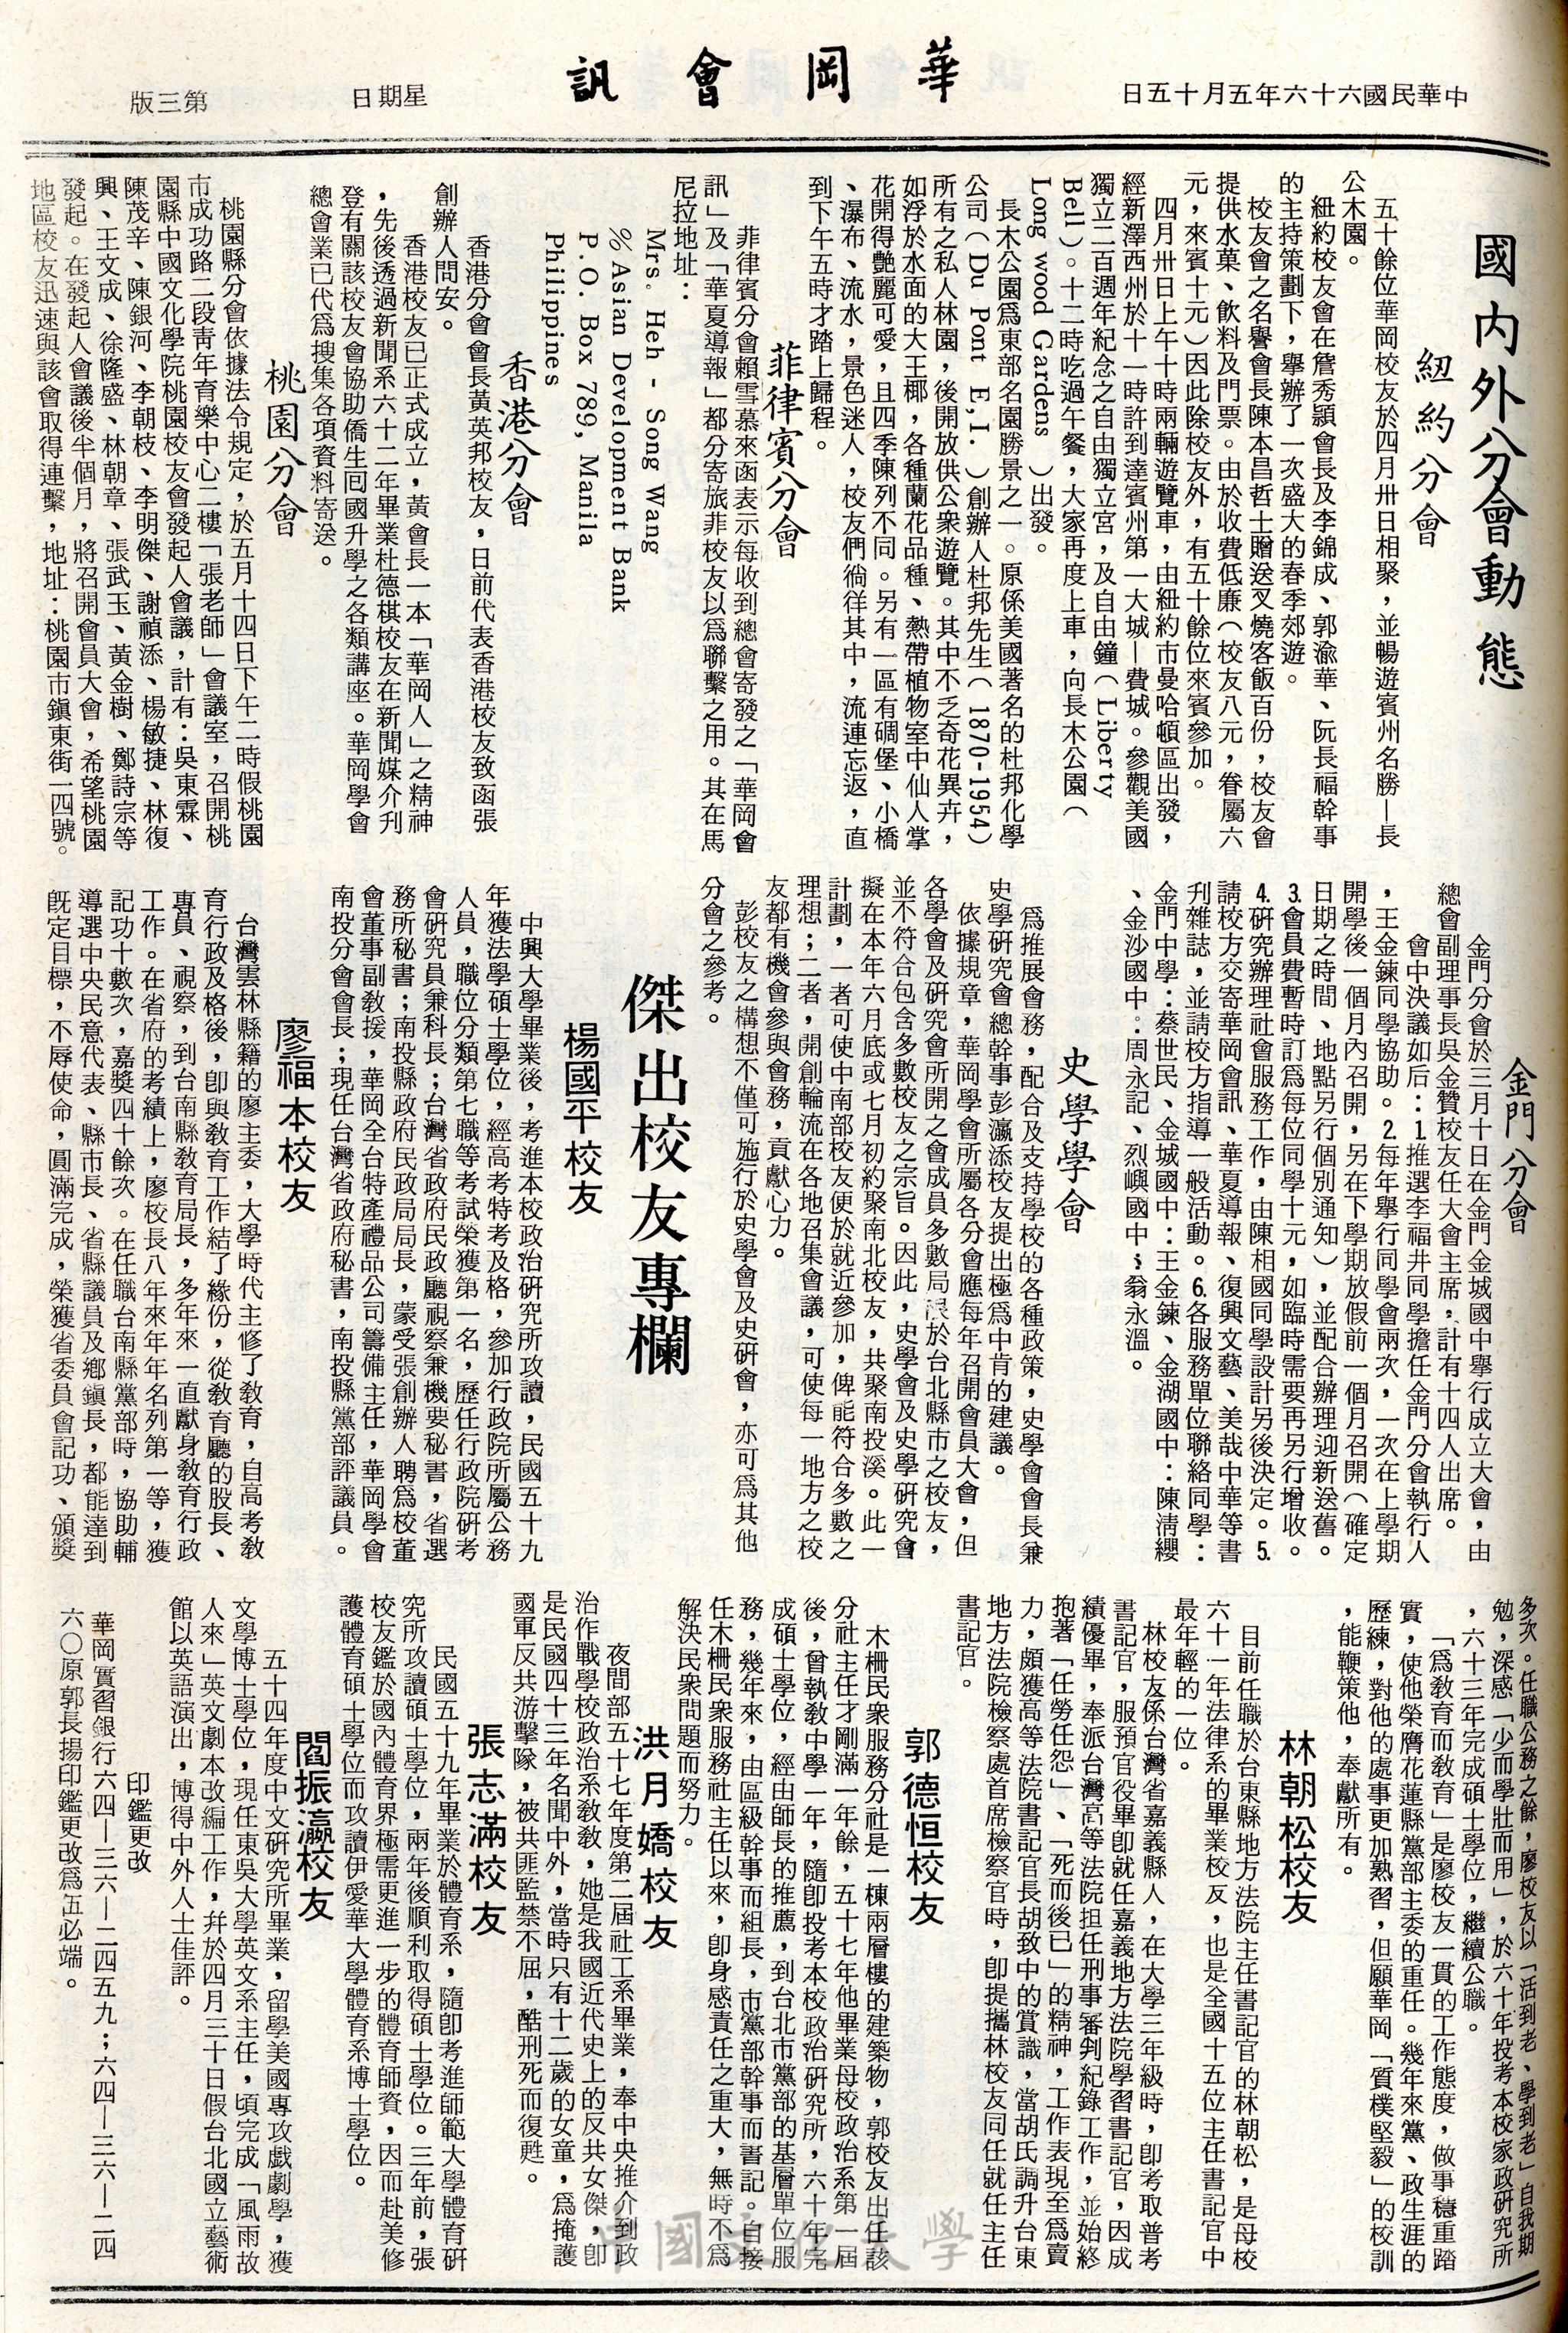 中華民國六十六年五月十五日
華岡會訊
星期日
第三版
國內外分會動態
紐約分會
五十餘位華岡校友於四月卅日相聚，並暢遊賓州名勝—長
公木園。
紐約校友會在詹秀穎會長及李錦成、郭渝華、阮長福幹事
的主持策劃下，舉辦了一次盛大的春季郊遊。
校友會之名譽會長陳本昌哲士贈送叉燒客飯百份，校友會
提供水菓、飲料及門票。由於收費低廉（校友八元，眷屬六
元，來賓十元）因此除校友外，有五十餘位來賓參加。
四月卅日上午十時兩輛遊覽車，由紐約市曼哈頓區出發，
經新澤西州於十一時許到達賓州第一大城—費城。參觀美國
獨立二百週年紀念之自由獨立宮，及自由鐘（Liberty
Bell）。十二時吃過午餐，大家再度上車，向長木公園（
Long wood Gardens ）出發。
長木公園爲東部名園勝景之一。原係美國著名的杜邦化學
公司（Du Pont E,I. ）創辦人杜邦先生（1870-1954）
所有之私人林園，後開放供公衆遊覽。其中不乏奇花異卉，
如浮於水面的大王椰，各種蘭花品種、熱帶植物室中仙人掌
花開得艷麗可愛，且四季陳列不同。另有一區有碉堡、小橋
、瀑布、流水，景色迷人，校友們徜徉其中，流連忘返，直
到下午五時才踏上歸程。
菲律賓分會
菲律賓分會賴雪慕來函表示每收到總會寄發之「華岡會
訊」及「華夏導報」都分寄旅菲校友以爲聯繫之用。其在馬
尼拉地址：
Mrs. Heh - Song Wang
℅ Asian Development Bank
P.O. Box 789, Manila
Philippines
香港分會
香港分會會長黃英邦校友，日前代表香港校友致函張
創辦人問安。
香港校友已正式成立，黃會長一本「華岡人」之精神
，先後透過新聞系六十二年畢業杜德棋校友在新聞媒介刋
登有關該校友會協助僑生囘國升學之各類講座。華岡學會
總會業已代爲搜集各項資料寄送。
桃園分會
桃園縣分會依據法令規定，於五月十四日下午二時假桃園
市成功路二段靑年育樂中心二樓「張老師」會議室，召開桃
園縣中國文化學院桃園校友會發起人會議，計有：吳東霖、
陳茂辛、陳銀河、李朝枝、李明傑、謝禎添、楊敏捷、林復
興、王文成、徐隆盛、林朝章、張武玉、黃金樹、鄭詩宗等
發起。在發起人會議後半個月，將召開會員大會，希望桃園
地區校友迅速與該會取得連繫，地址：桃園市鎭東街一四號。
金門分會
金門分會於三月十日在金門金城國中舉行成立大會，由
總會副理事長吳金贊校友任大會主席，計有十四人出席。
會中決議如后：1.推選李福井同學擔任金門分會執行人
，王金鍊同學協助。2.每年舉行同學會兩次，一次在上學期
開學後一個月內召開，另在下學期放假前一個月召開（確定
日期之時間、地點另行個別通知），並配合辦理迎新送舊。
3.會員費暫時訂爲每位同學十元，如臨時需要再另行增收。
4.研究辦理社會服務工作，由陳相國同學設計另後決定。5.
請校方交寄華岡會訊、華夏導報、復興文藝、美哉中華等書
刋雜誌，並請校方指導一般活動。6.各服務單位聯絡同學：
金門中學：蔡世民、金城國中：王金鍊、金湖國中：陳淸纓
、金沙國中：周永記、烈嶼國中：翁永溫。
史學學會
爲推展會務，配合及支持學校的各種政策，史學會會長兼
史學研究會總幹事彭瀛添校友提出極爲中肯的建議。
依據規章，華岡學會所屬各分會應每年召開會員大會，但
各學會及研究會所開之會成員多數局限於台北縣市之校友，
並不符合包含多數校友之宗旨。因此，史學會及史學研究會
擬在本年六月底或七月初約聚南北校友，共聚南投溪。此一
計劃，一者可使中南部校友便於就近參加，俾能符合多數之
理想；二者，開創輪流在各地召集會議，可使每一地方之校
友都有機會參與會務，貢獻心力。
彭校友之構想不僅可施行於史學會及史研會，亦可爲其他
分會之參考。
傑出校友專欄
楊國平校友
中興大學畢業後，考進本校政治研究所攻讀，民國五十九
年獲法學碩士學位，經高考特考及格，參加行政院所屬公務
人員，職位分類第七職等考試榮獲第一名，歷任行政院研考
會研究員兼科長；台灣省政府民政廳視察兼機要秘書，省選
務所秘書；南投縣政府民政局局長，蒙受張創辦人聘爲校董
會董事副敎授，華岡全台特產禮品公司籌備主任，華岡學會
南投分會會長；現任台灣省政府秘書，南投縣黨部評議員。
廖福本校友
台灣雲林縣籍的廖主委，大學時代主修了敎育，自高考敎
育行政及格後，卽與敎育工作結了緣份，從敎育廳的股長、
專員、視察，到台南縣敎育局長，多年來一直獻身敎育行政
工作。在省府的考績上，廖校長八年來年年名列第一等，獲
記功十數次，嘉獎四十餘次。在任職台南縣黨部時，協助輔
導選中央民意代表、縣市長、省縣議員及鄉鎭長，都能達到
旣定目標，不辱使命，圓滿完成，榮獲省委員會記功、頒獎
多次。任職公務之餘，廖校友以「活到老、學到老」自我期
勉，深感「少而學壯而用」，於六十年投考本校家政研究所
，六十三年完成碩士學位，繼續公職。
「爲敎育而敎育」是廖校友一貫的工作態度，做事穩重踏
實，使他榮膺花蓮縣黨部主委的重任。幾年來黨、政生涯的
歷練，對他的處事更加熟習，但願華岡「質樸堅毅」的校訓
，能鞭策他，奉獻所有。
林朝松校友
目前任職於台東縣地方法院主任書記官的林朝松，是母校
六十一年法律系的畢業校友，也是全國十五位主任書記官中
最年輕的一位。
林校友係台灣省嘉義縣人，在大學三年級時，卽考取普考
書記官，服預官役畢卽就任嘉義地方法院學習書記官，因成
績優畢，奉派台灣高等法院担任刑事審判紀錄工作，並始終
抱著「任勞任怨」、「死而後已」的精神，工作表現至爲賣
力，頗獲高等法院書記官長胡致中的賞識，當胡氏調升台東
地方法院檢察處首席檢察官時，卽提攜林校友同任就任主任
書記官。
郭德恒校友
木柵民衆服務分社是一棟兩層樓的建築物，郭校友出任該
分社主任才剛滿一年餘，五十七年他畢業母校政治系第一屆
後，曾執敎中學一年，隨卽投考本校政治研究所，六十年完
成碩士學位，經由師長的推薦，到台北市黨部的基層單位服
務，幾年來，由區級幹事而組長，市黨部幹事而書記。自接
任木柵民衆服務社主任以來，卽身感責任之重大，無時不爲
解決民衆問題而努力。
洪月嬌校友
夜間部五十七年度第二屆社工系畢業，奉中央推介到政
治作戰學校政治系敎敎，她是我國近代史上的反共女傑，卽
是民國四十三年名聞中外，當時只有十二歲的女童，爲掩護
國軍反共游擊隊，被共匪監禁不屈，酷刑死而復甦。
張志滿校友
民國五十九年畢業於體育系，隨卽考進師範大學體育研
究所攻讀碩士學位，兩年後順利取得碩士學位。三年前，張
校友鑑於國內體育界極需更進一步的體育師資，因而赴美修
護體育碩士學位而攻讀伊愛華大學體育系博士學位。
閻振瀛校友
五十四年度中文研究所畢業，留學美國專攻戲劇學，獲
文學博士學位，現任東吳大學英文系主任，頃完成「風雨故
人來」英文劇本改編工作，幷於四月三十日假台北國立藝術
館以英語演出，博得中外人士佳評。
印鑑更改
華岡實習銀行六四—三六—二四五九；六四—三六—二四
六〇原郭長揚印鑑更改爲伍必端。
中國文化大學